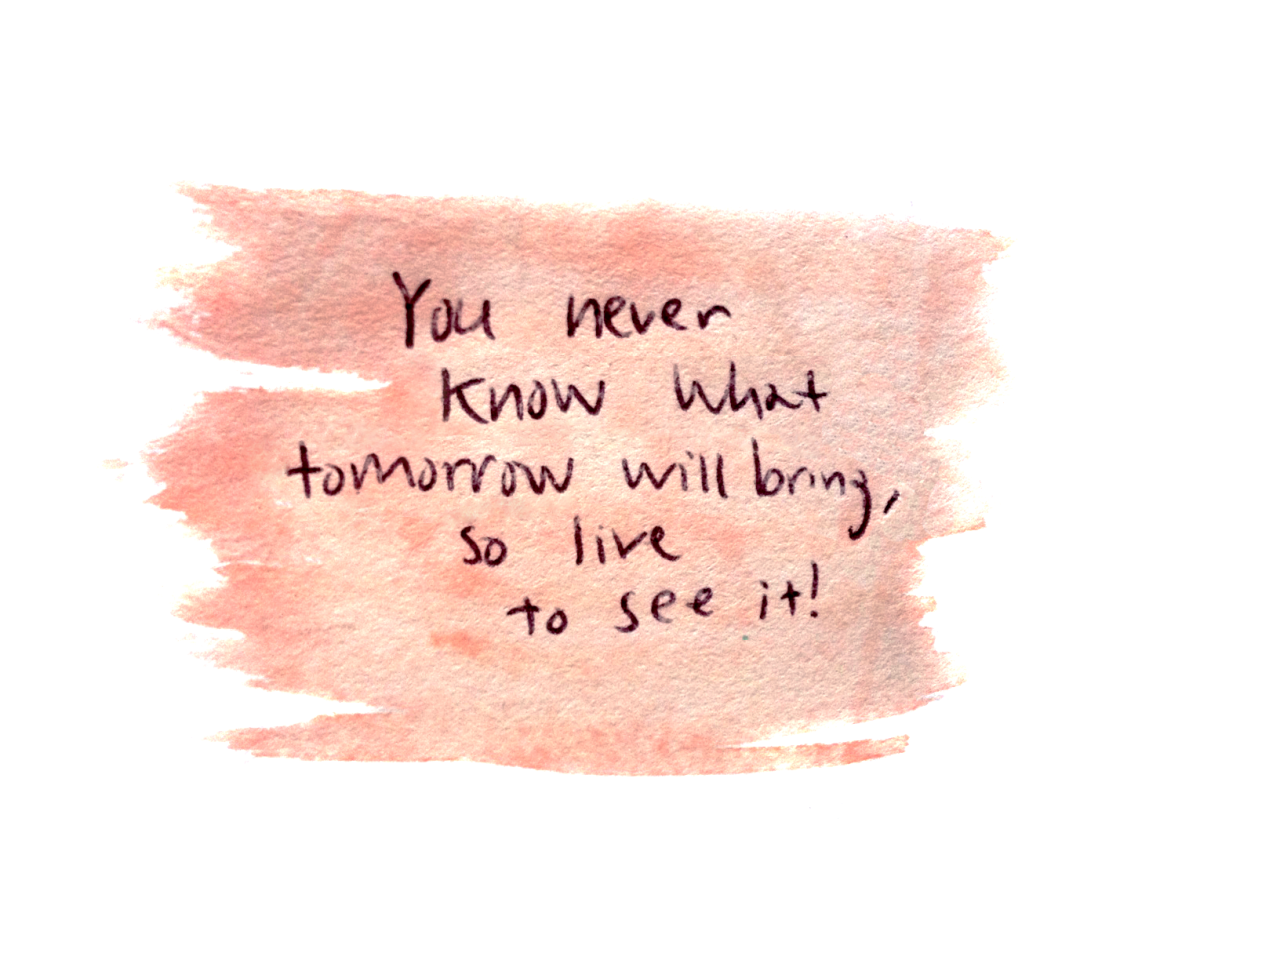 You never
know what
tomorrow will bring,
so live
to see it!